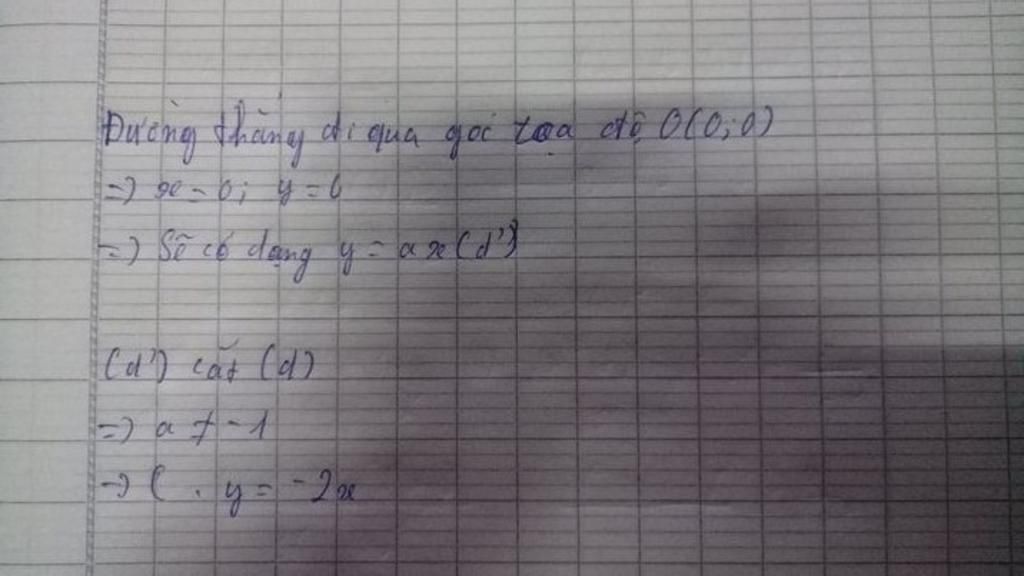 Đường thẳng đi qua gốc tọa độ O(0;0)
=> x = 0; y = 0
=> Sẽ có dạng y = ax (d')
(d') cắt (d)
=> a ≠ -1
-> C. y = -2x